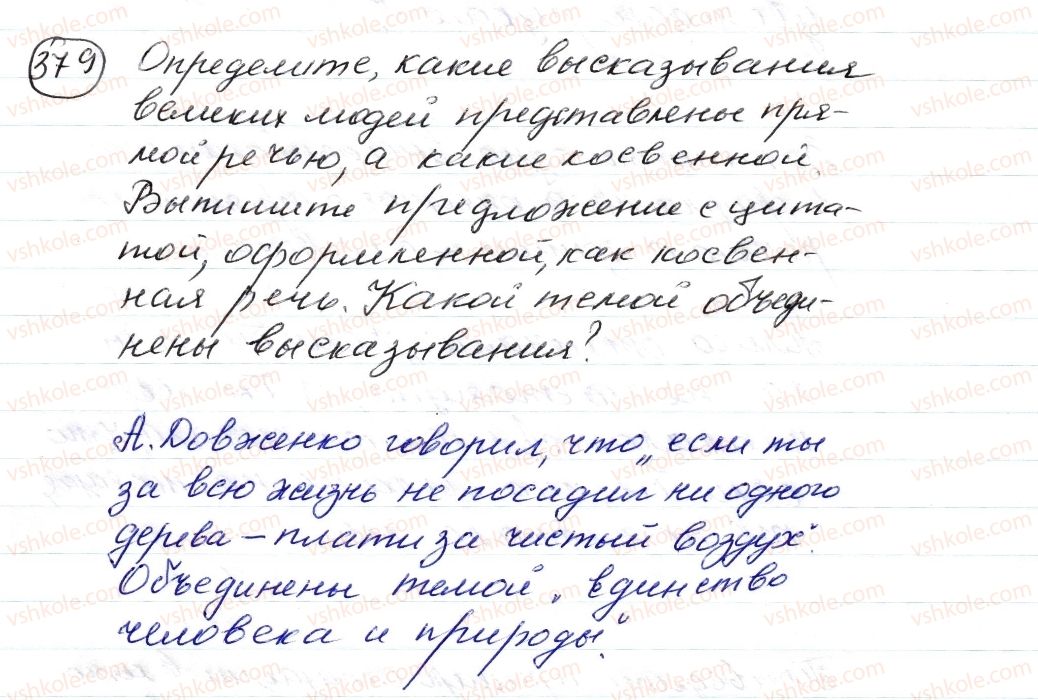 379 Определите, какие высказывания
великих людей представлены пря-
мой речью, а какие косвенной
Выпишите предложение с цита-
той, оформленной, как косвен-
ная речь. Какой темой объеди-
нены высказывания?
А. Довженко говорил, что „если ты
за всю жизнь не посадил ни одного
дерева – плати за чистый воздух".
Объединены темой „Единство
человека и природы".